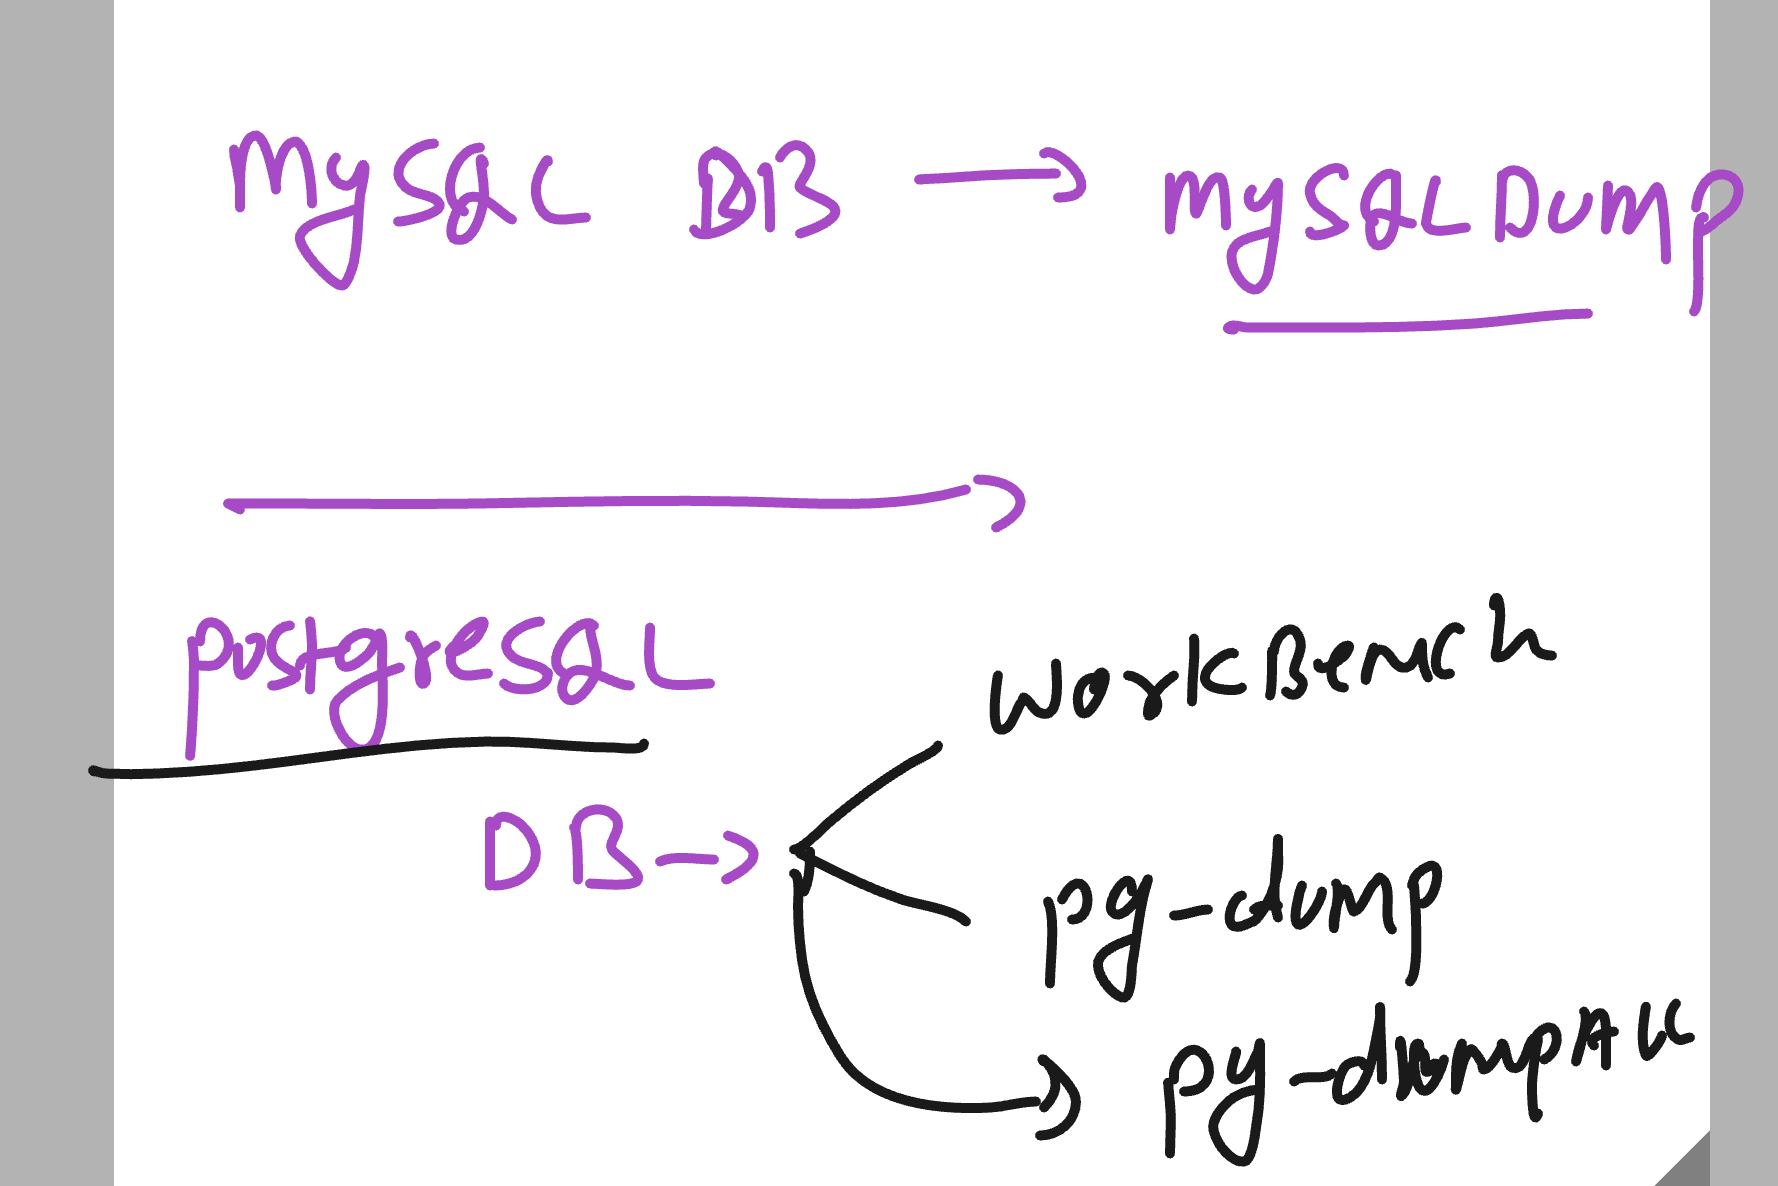 MySQL DB → MySQLDump
postgreSQL
DB →
WorkBench
pg-dump
pg-dumpAll